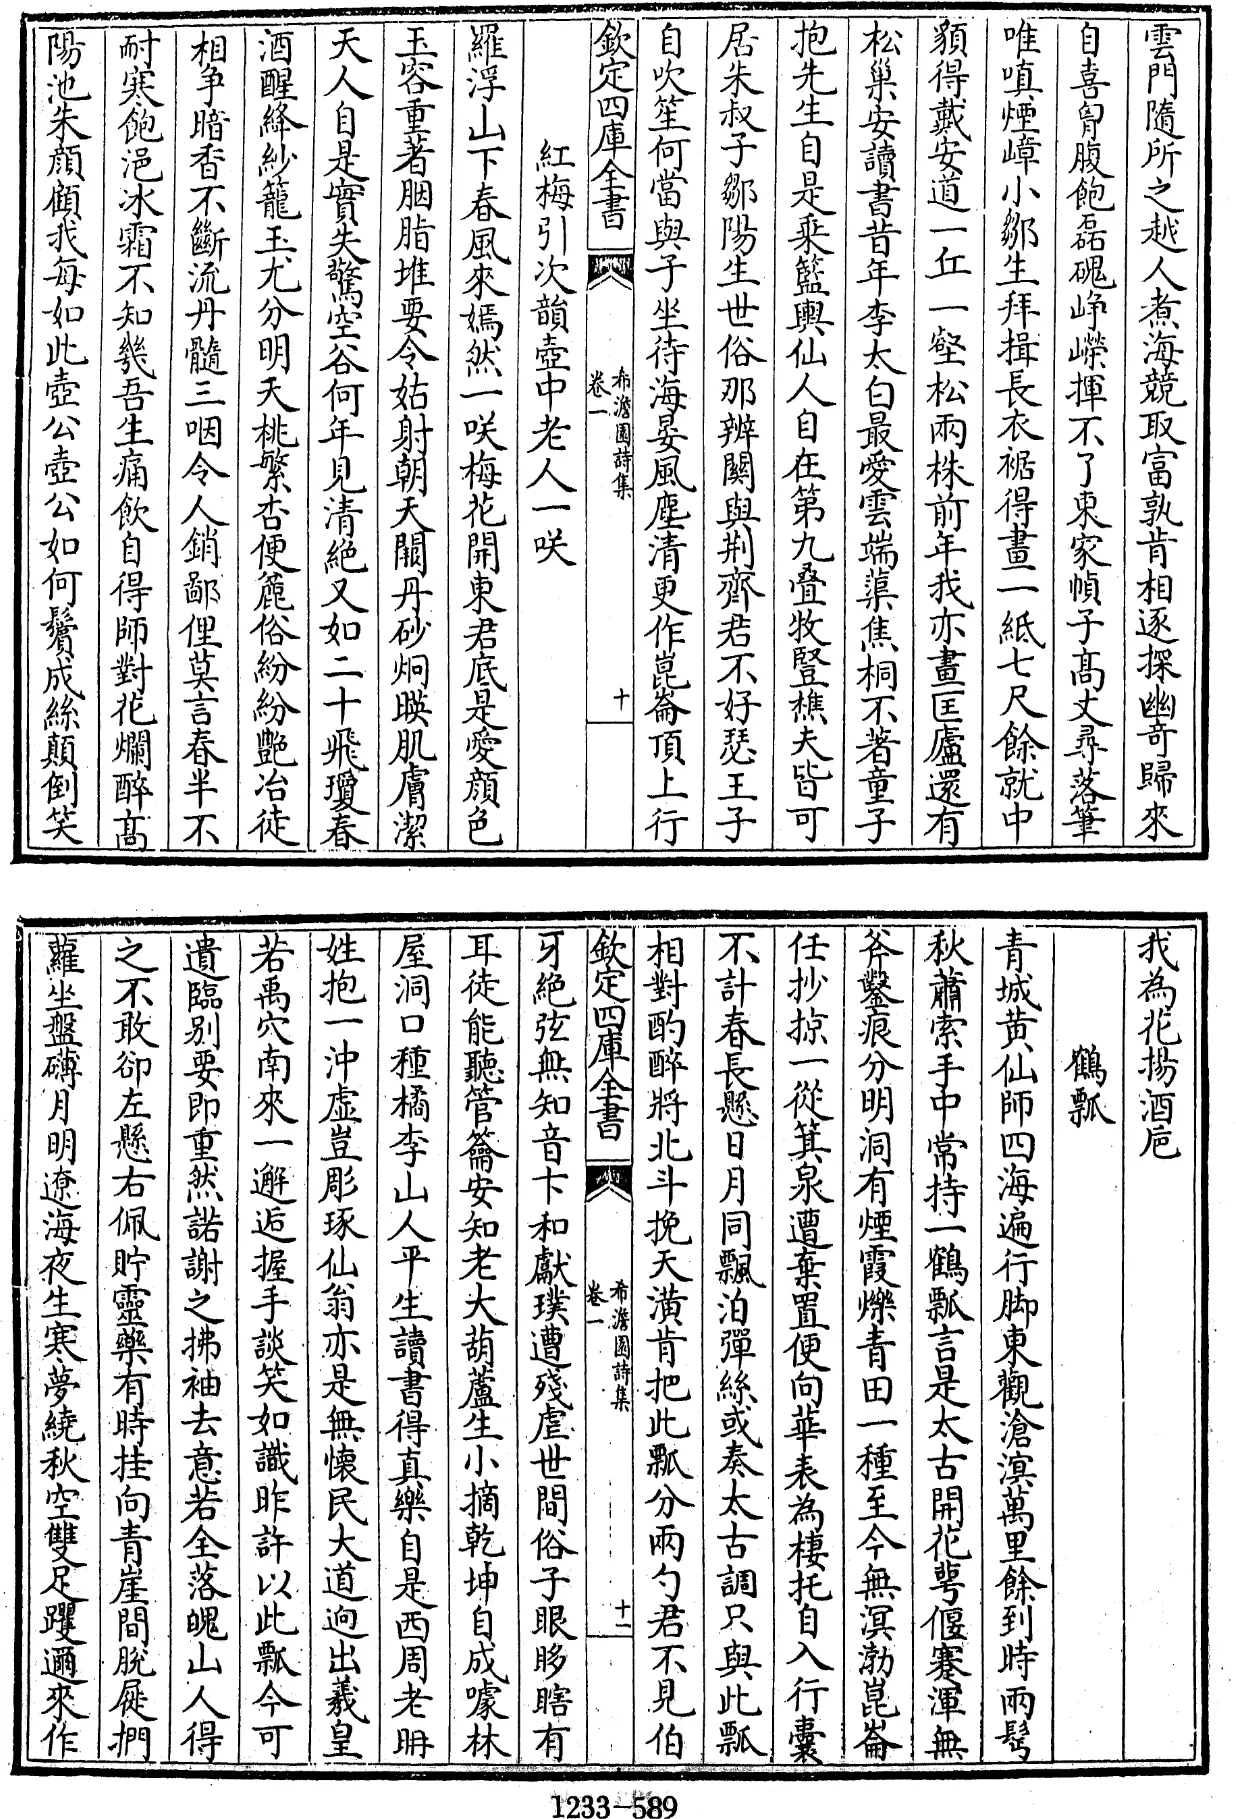 雲門隨所之越人煮海競取富孰肯相逐探幽奇歸來
自喜胷腹飽磊磈崢嶸揮不了東家幀子髙丈尋落筆
唯嗔煙嶂小鄒生拜揖長衣裾得畫一紙七尺餘就中
貌得戴安道一丘一壑松兩株前年我亦畫匡廬還有
松巢安讀書昔年李太白最愛雲端蕖焦桐不著童子
抱先生自是乗籃輿仙人自在第九叠牧豎樵夫皆可
居朱叔子鄒陽生世俗那辨關與荆齊君不好瑟王子
自吹笙何當與子坐待海晏風塵清更作崑崙頂上行
欽定四庫全書
希澹園詩集
卷一
十
紅梅引次韻壺中老人一咲
羅浮山下春風來嫣然一咲梅花開東君底是愛顔色
玉容重著胭脂堆要令姑射朝天闕丹砂炯暎肌膚潔
天人自是實失驚空谷何年見清絶又如二十飛瓊春
酒醒絳紗籠玉尤分明夭桃繁杏便麄俗紛紛艷冶徒
相爭暗香不斷流丹髓三咽令人銷鄙俚莫言春半不
耐寒飽浥冰霜不知㡬吾生痛飲自得師對花爛醉髙
陽池朱顔顧我每如此壺公壺公如何鬢成絲顛倒笑
我為花揚酒巵
鶴瓢
青城黄仙師四海遍行脚東觀滄溟萬里餘到時兩髩
秋蕭索手中常持一鶴瓢言是太古開花萼偃蹇渾無
斧鑿痕分明洞有煙霞爍青田一種至今無溟渤崑崙
任抄掠一從箕泉遭棄置便向華表為棲托自入行囊
不計春長懸日月同飄泊彈絲或奏太古調只與此瓢
相對酌醉將北斗挽天潢肯把此瓢分兩勺君不見伯
欽定四庫全書
希澹園詩集
卷一
十一
牙絶弦無知音卞和獻璞遭殘虐世間俗子眼眵瞎有
耳徒能聽管籥安知老大葫蘆生小摘乾坤自成噱林
屋洞口種橘李山人平生讀書得真樂自是西周老冊
姓抱一沖虛豈彫琢仙翁亦是無懷民大道逈出羲皇
若禹穴南來一邂逅握手談笑如識昨許以此瓢今可
遺臨别要即重然諾謝之拂袖去意若全落魄山人得
之不敢卻左懸右佩貯靈藥有時挂向青崖間脱屣捫
蘿坐盤礴月明遼海夜生寒夢繞秋空雙足躩邇來作
1233-589